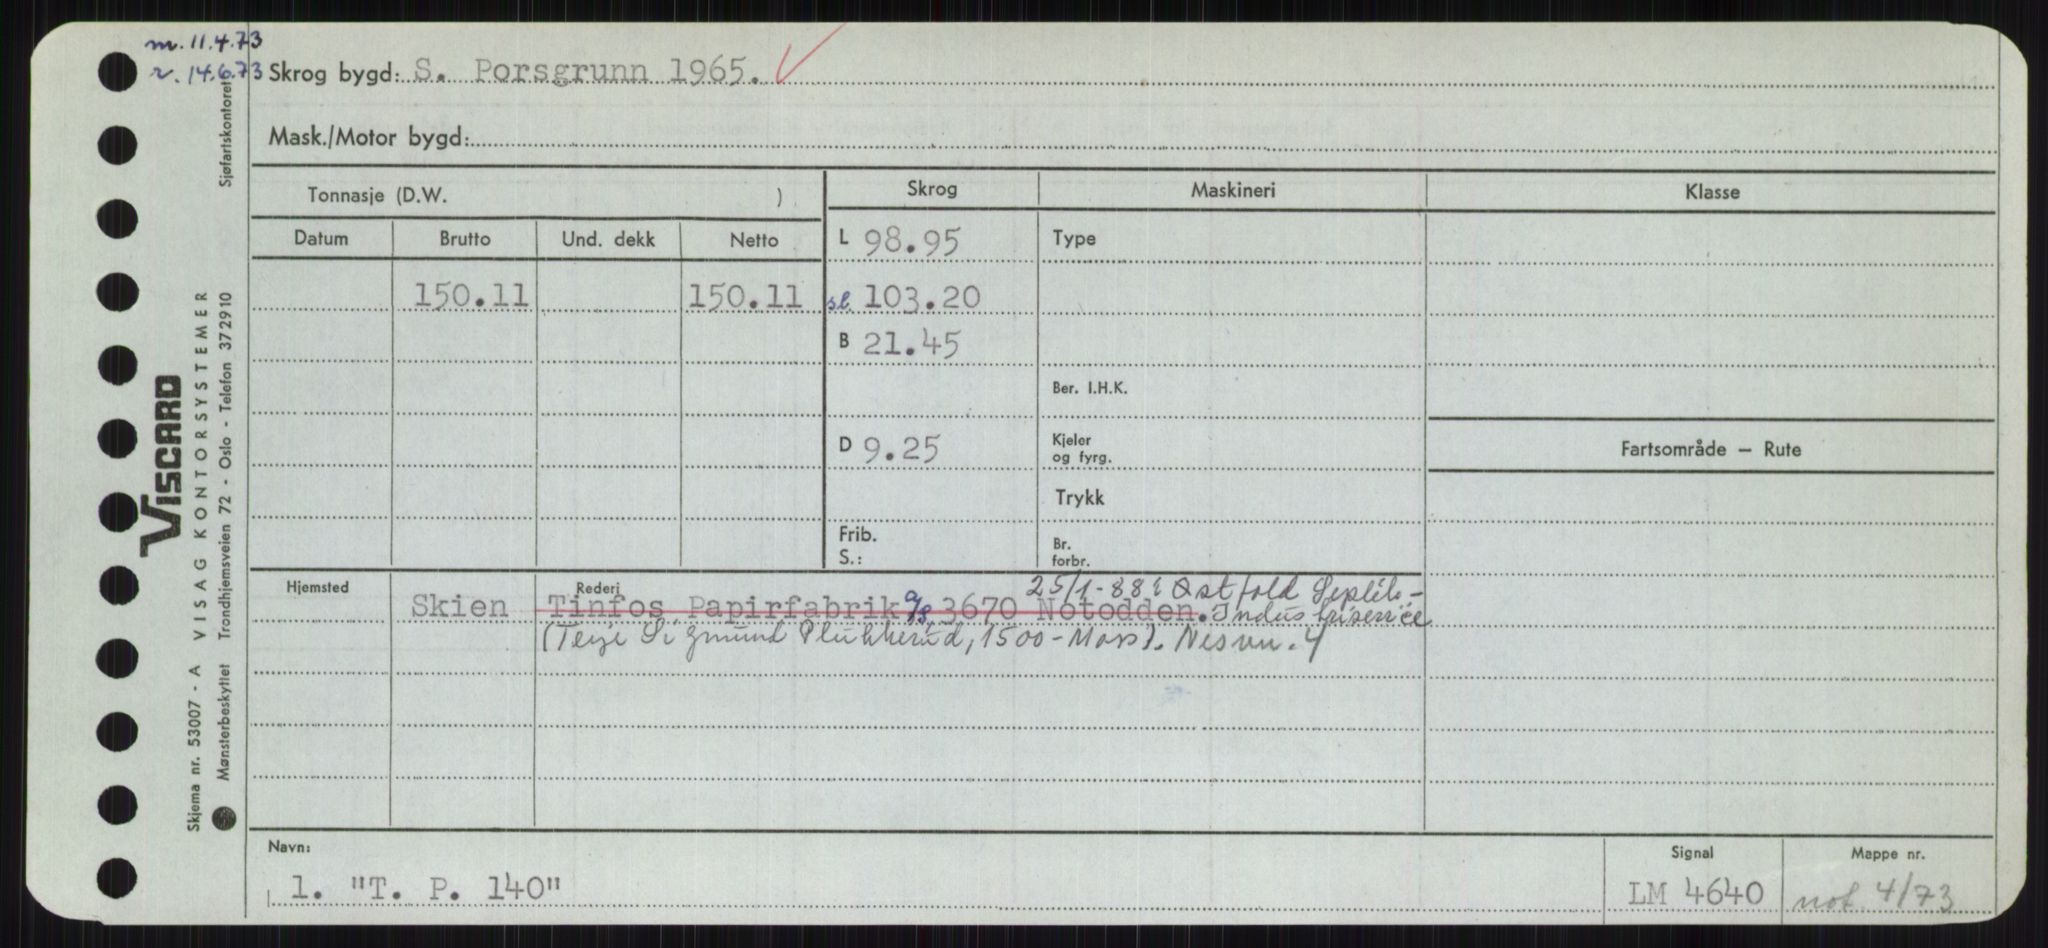 m. 11.4.73
r. 14.6.73
Skrog bygd: S. Porsgrunn 1965.
Mask./Motor bygd:
Tonnasje (D.W. )
Skrog
Maskineri
Klasse
Datum
Brutto
Und. dekk
Netto
L 98.95
Type
150.11
150.11
sl. 103.20
B 21.45
Ber. I.H.K.
D 9.25
Kjeler
og fyrg.
Fartsområde — Rute
Trykk
Frib.
S.:
Br.
forbr.
Hjemsted
Skien
Rederi
25/1-88: Østfold
Tinfos Papirfabrik a/s, 3670 Notodden. Industriservice
(Terje Sigmund Plukkerud, 1500-Moss). Nesvn. 4
Navn:
1. "T. P. 140"
Signal
LM 4640
Mappe nr.
not. 4/73
Sjøfartskontoret
VISCARD
VISAG KONTORSYSTEMER
Trondhjemsveien 72 - Oslo - Telefon 372910
Skjema nr. 53007 - A
Mønsterbeskyttet